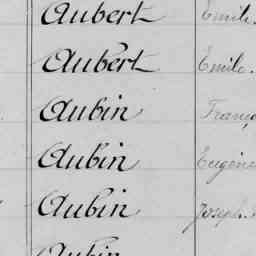 Aubert Emile.
Aubert Emile.
Aubin
Aubin Eugène
Aubin Joseph
Aubin